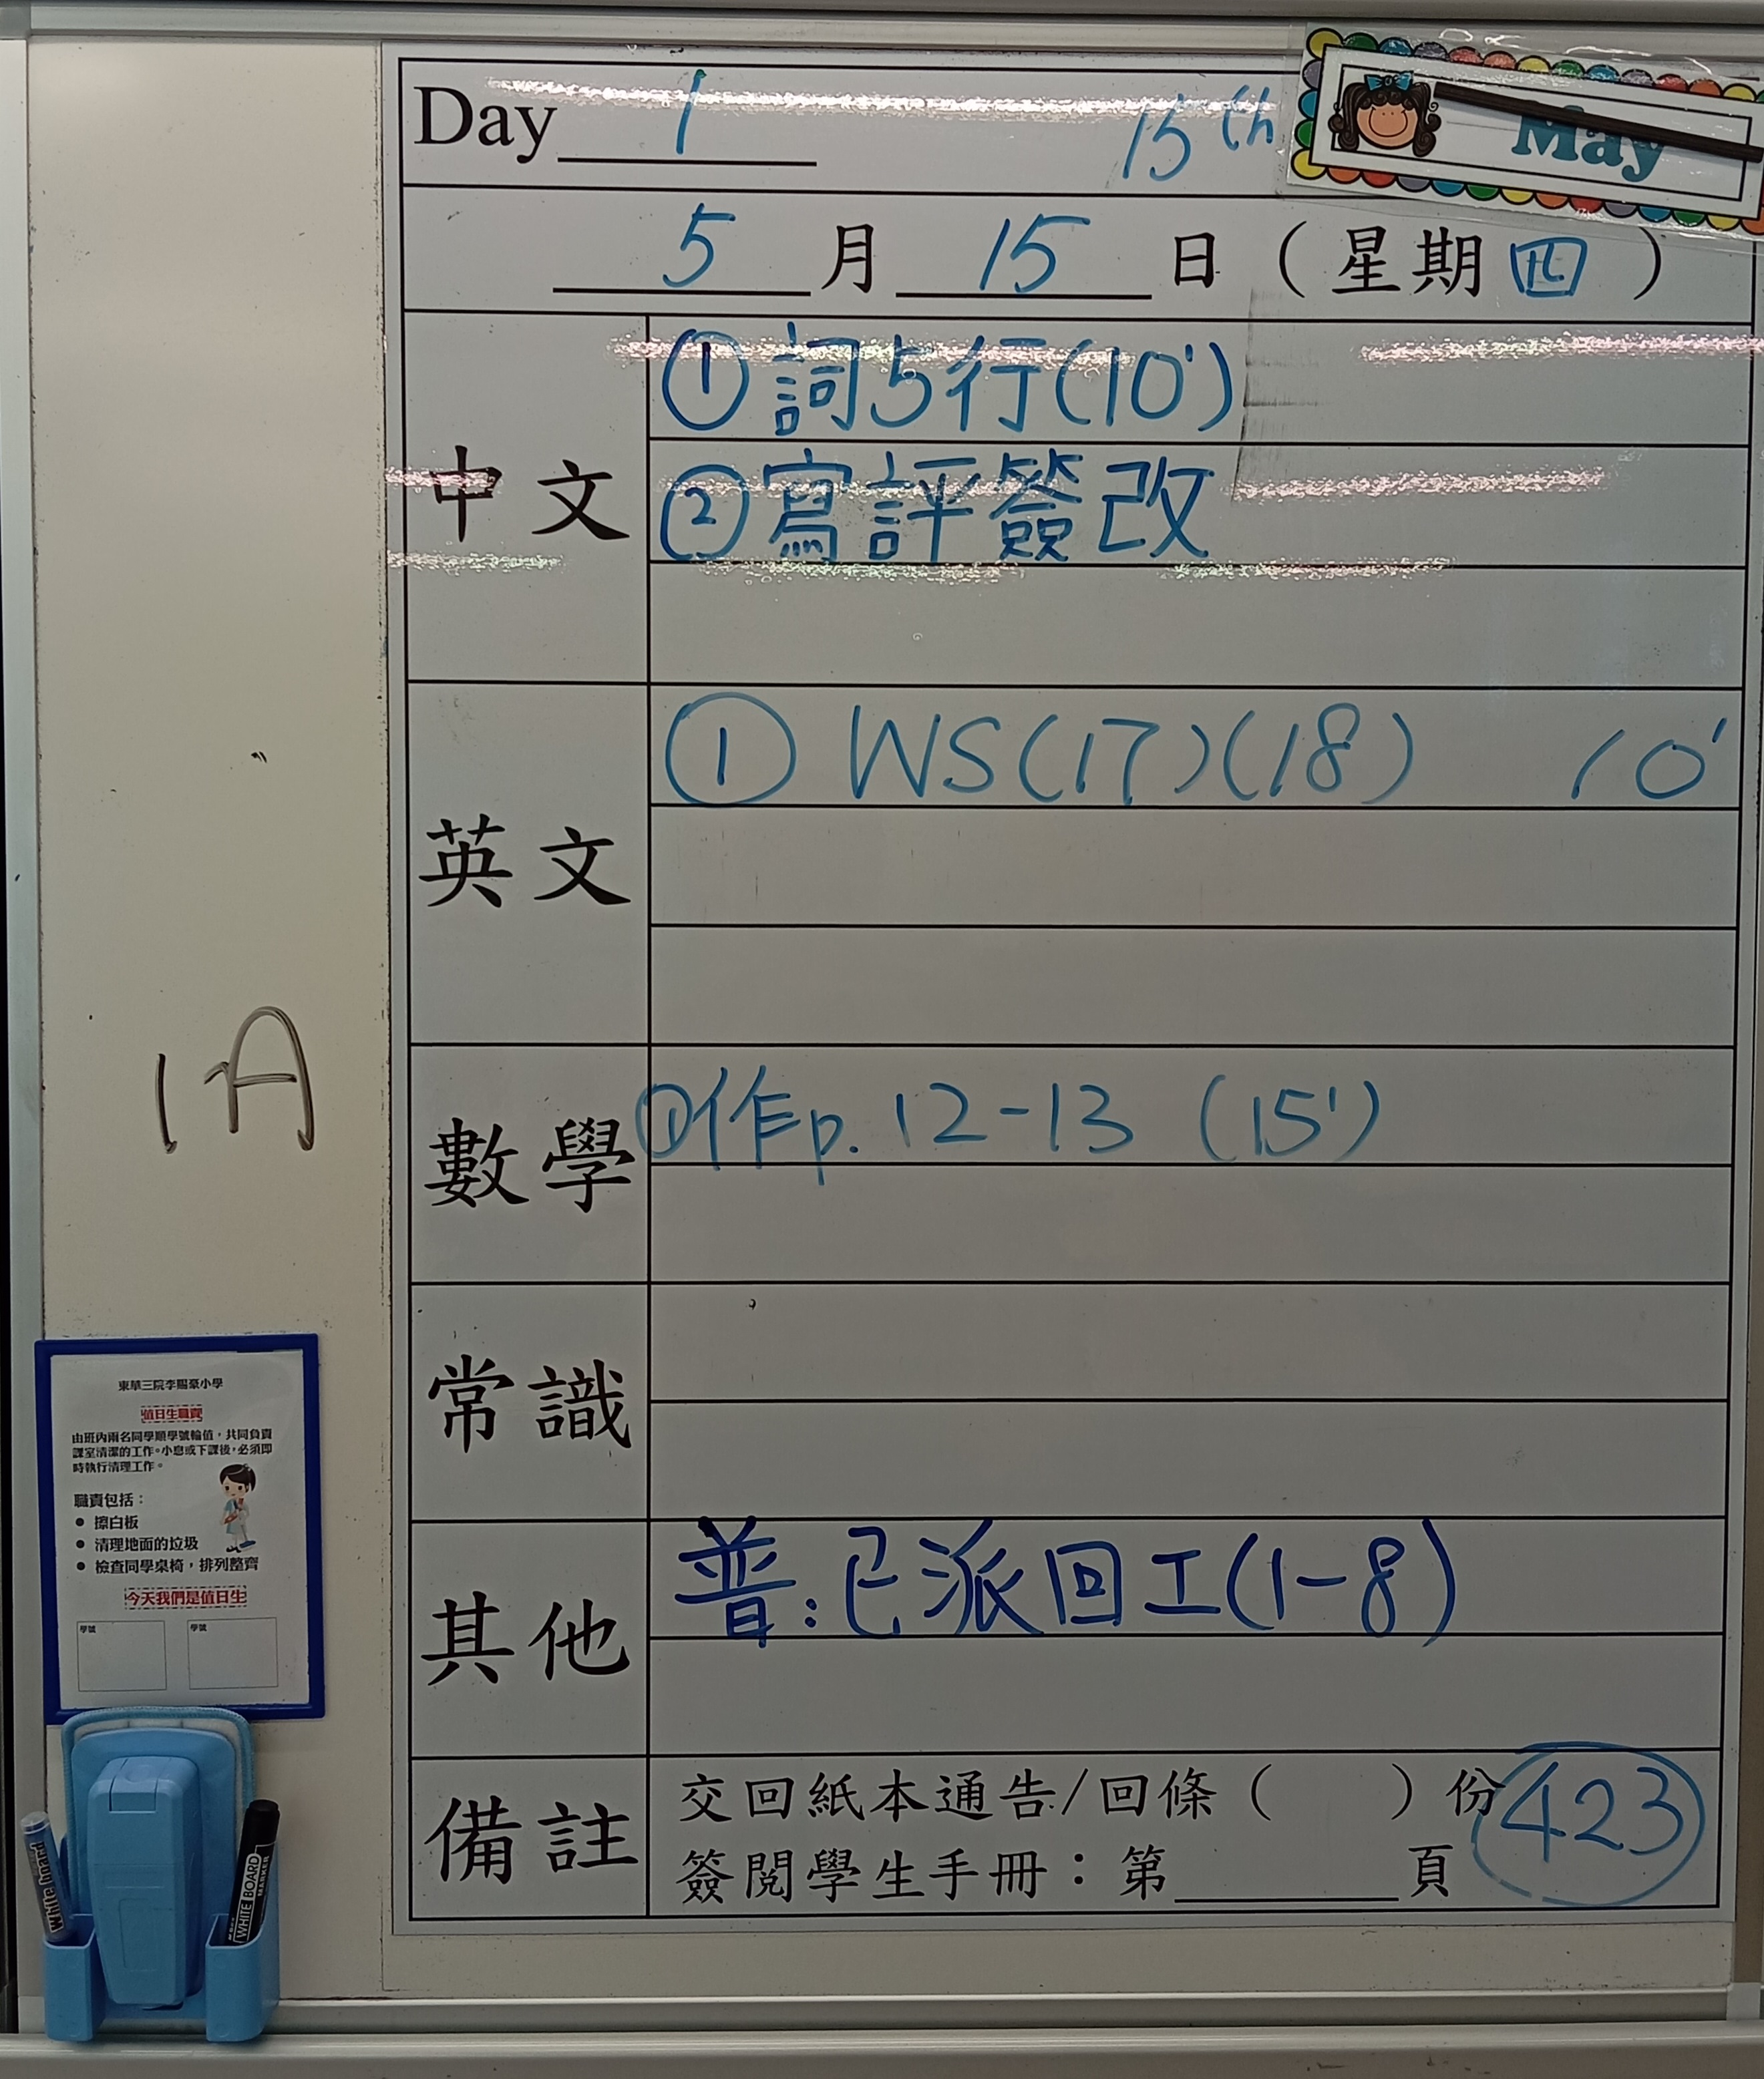 Day 1 15th May
5月15日(星期四)
中文
①詞5行(10')
②寫評簽改
英文
① WS(17)(18) 10'
數學
①作p.12-13 (15')
常識
其他
普:已派回工(1-8)
備註
交回紙本通告/回條( )份
簽閱學生手冊:第____頁
423
1A
東華三院李賜豪小學
值日生職責
由班內兩名同學順學號輪值,共同負責
課室清潔的工作。小息或下課後,必須即
時執行清理工作。
職責包括:
● 擦白板
● 清理地面的垃圾
● 檢查同學桌椅,排列整齊
今天我們是值日生
學號 學號
White board
WHITE BOARD
MARKER